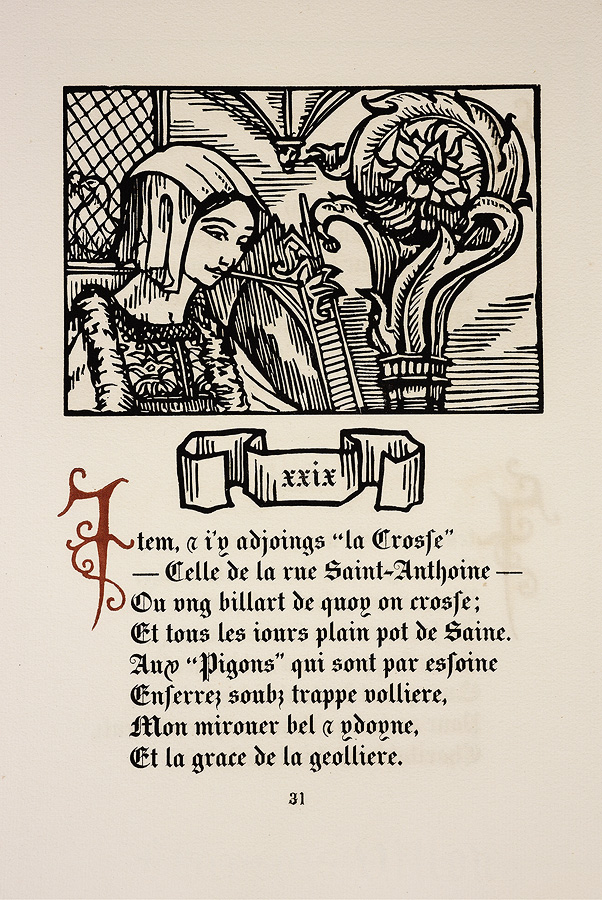 xxix
Item, ⁊ i'y adjoings “la Crosſe”
— Celle de la rue Saint-Anthoine —
Ou vng billart de quoy on crosſe;
Et tous les iours plain pot de Saine.
Aux “Pigons” qui sont par esſoine
Enſerrez soubz trappe volliere,
Mon mirouer bel ⁊ ydoyne,
Et la grace de la geolliere.
31